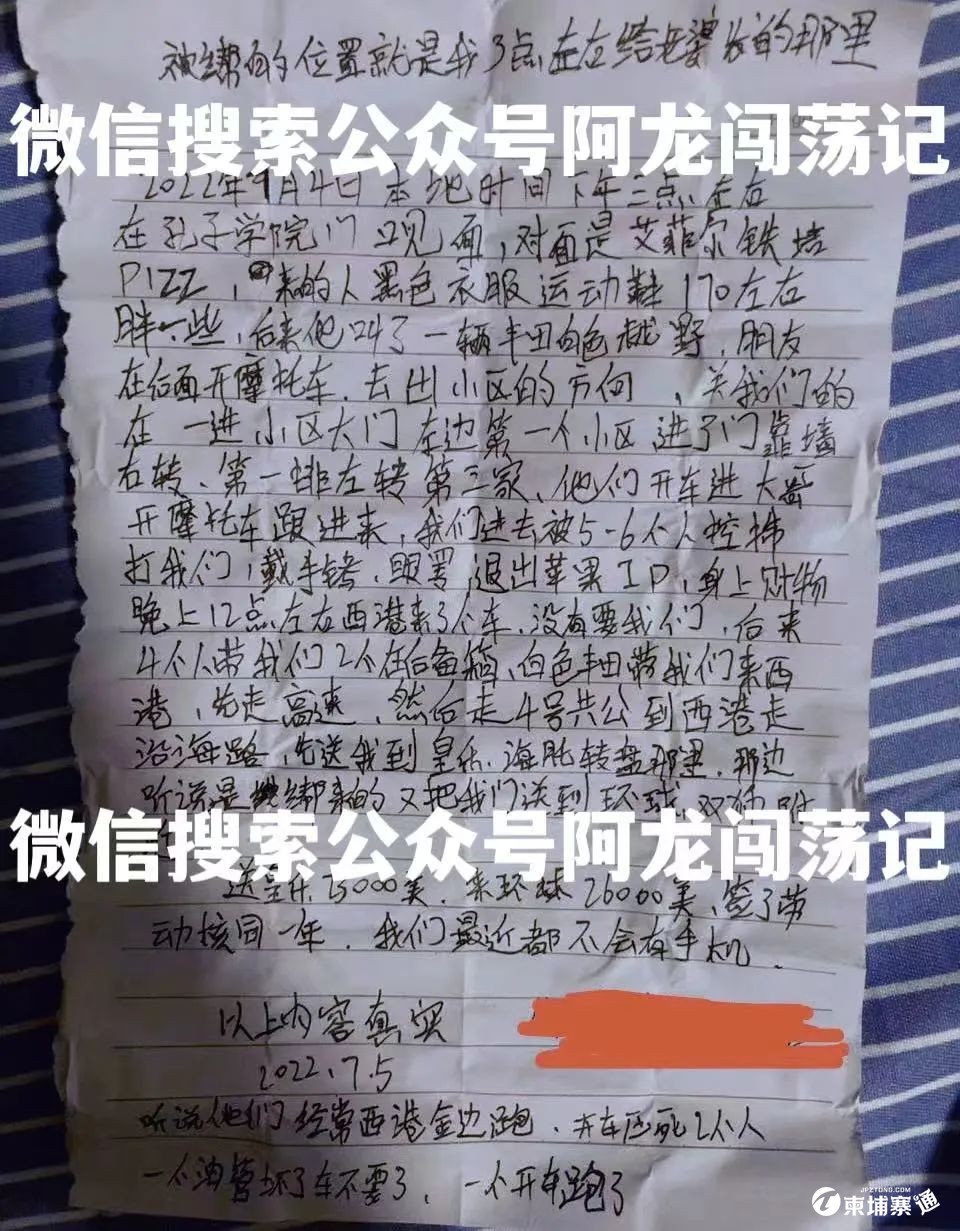 被绑的位置就是我3点左右给老婆发的那里
微信搜索公众号阿龙闯荡记
2022年7月4日本地时间下午三点左右
在孔子学院门口见面，对面是艾菲尔铁塔
PIZZ，来的人黑色衣服运动鞋170左右
胖一些，后来他叫了一辆丰田白色越野，朋友
在后面开摩托车，去出小区的方向，关我们的
在一进小区大门左边第一个小区进了门靠墙
右转、第一排左转第三家、他们开车进大
开摩托车跟进来，我们进去被5-6个人控
打我们，戴手铐，眼罩退出苹果ID，身上财物
晚上12点左右西港来3个车，没有要我们，后来
4个人带我们2个在后备箱，白色丰田带我们来西
港，先走高速，然后走4号共公到西港走
沿海路，先送我到皇乐，海豚转盘那里，那边
听说是绑来的又把我们送到环球，双狮附
微信搜索公众号阿龙闯荡记
送皇乐 美，来环球26000美，签了劳
动核同一年，我们最近都不会有手机。
以上内容真实
2022.7.5
听说他们经常西港金边跑，开车压死2个人
一个油管坏了车不要了，一个开车跑了
JPZTONG.COM
柬埔寨通